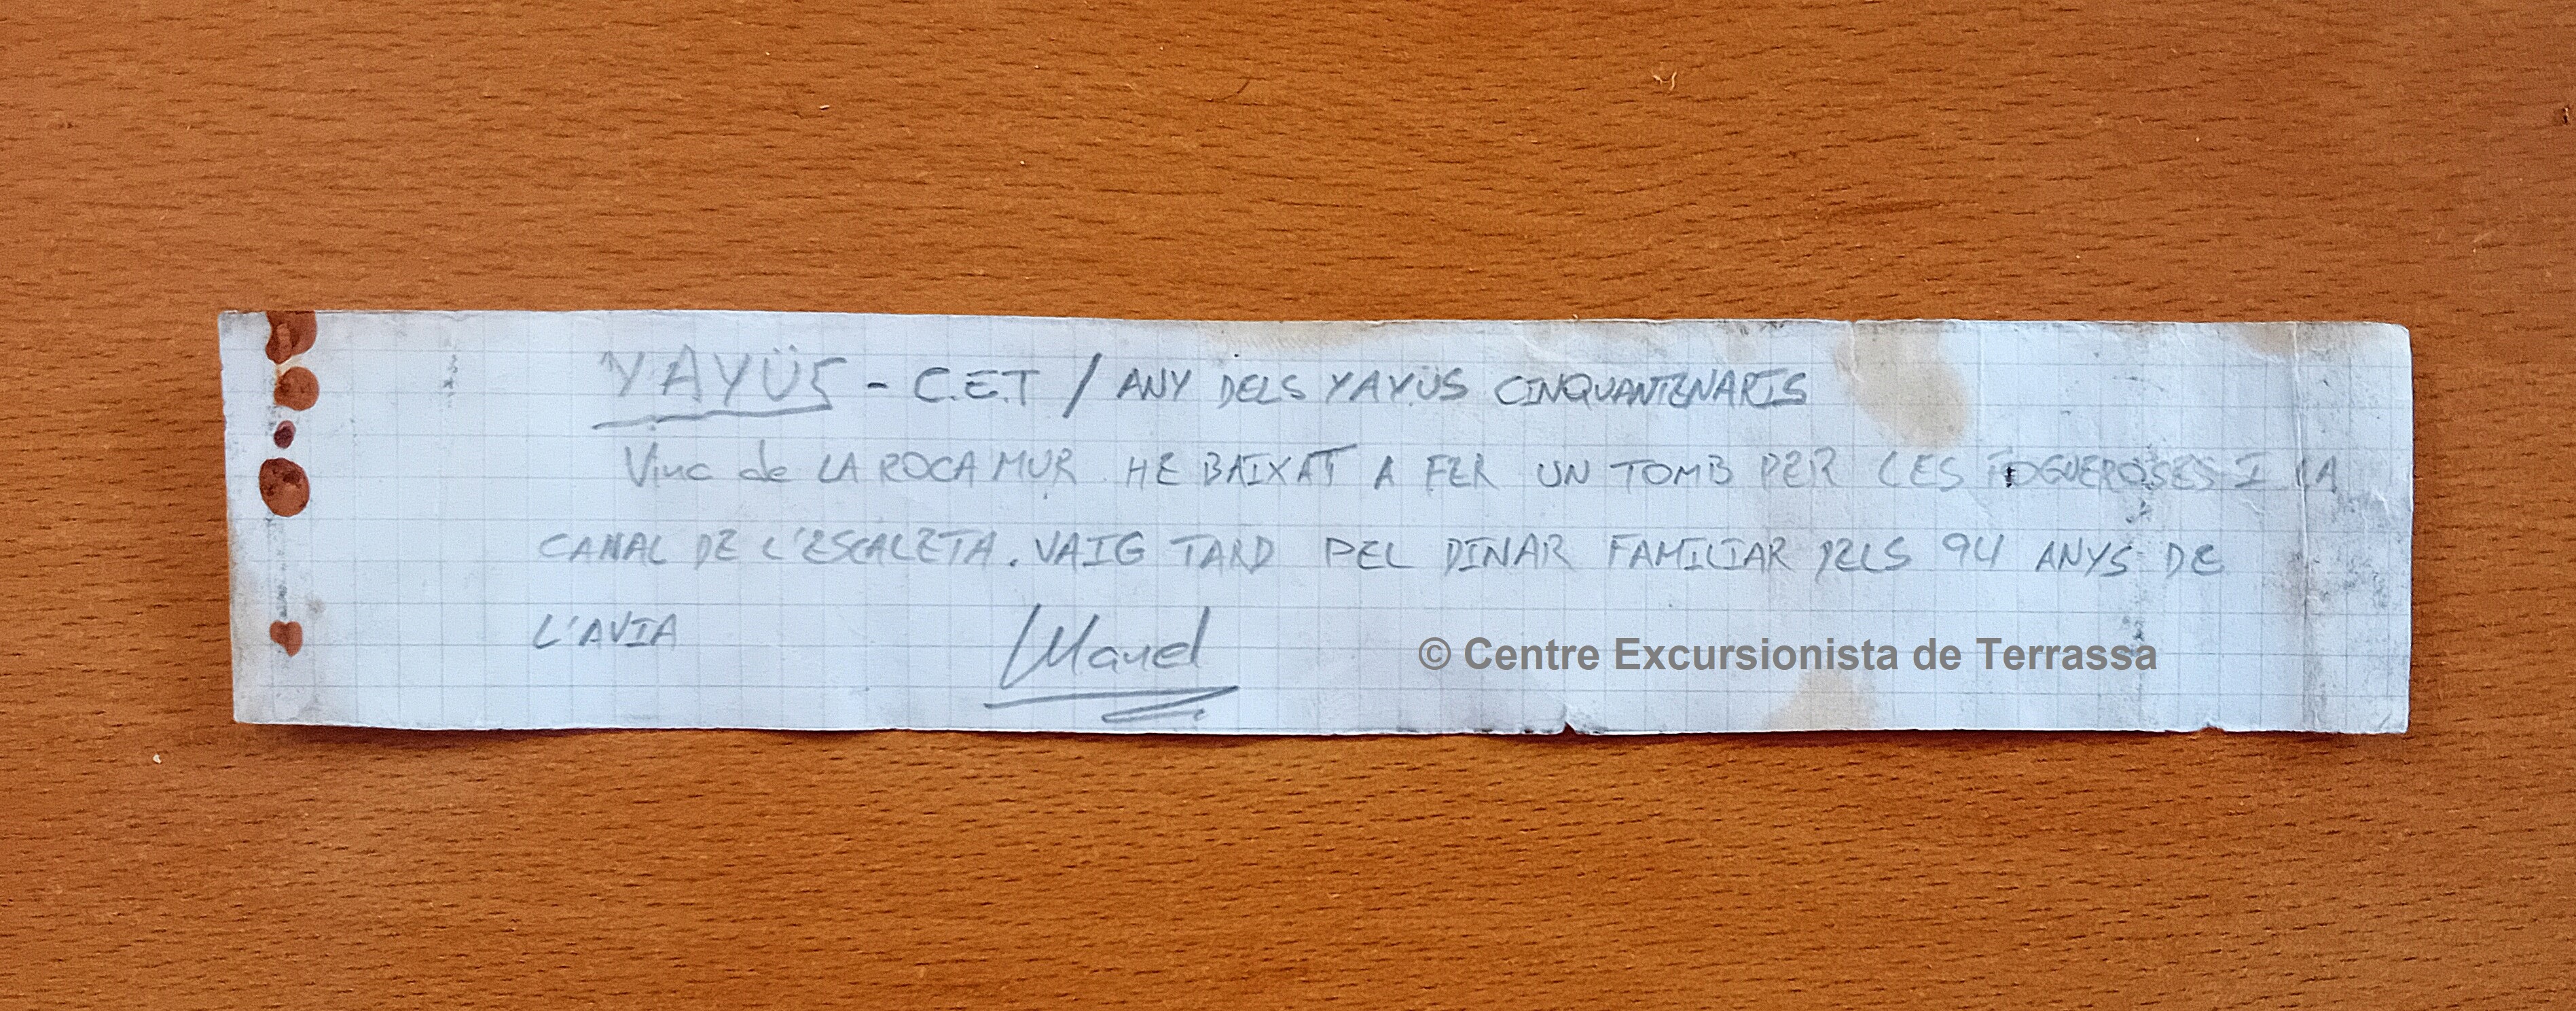 YAYÜS - C.E.T / ANY DELS YAYÜS CINQUANTENARIS
Vinc de LA ROCA MUR HE BAIXAT A FER UN TOMB PER LES FOGUEROSES I LA
CANAL DE L'ESCALETA. VAIG TARD PEL DINAR FAMILIAR DELS 94 ANYS DE
L'AVIA
Manel
© Centre Excursionista de Terrassa